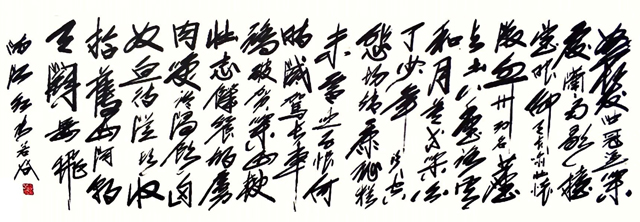 怒髮冲冠凭闌
處瀟雨歇抬
望眼仰天長嘯壯懷
激烈三十功名塵
与土八千里路雲
和月莫等閒白
了少年頭空
悲切靖康恥猶
未雪臣子恨何
時滅駕長車
踏破賀蘭山缺
壯志饑餐胡虜
肉笑談渴飲匈
奴血待從頭收
拾舊山河朝
天闕岳飛
滿江紅